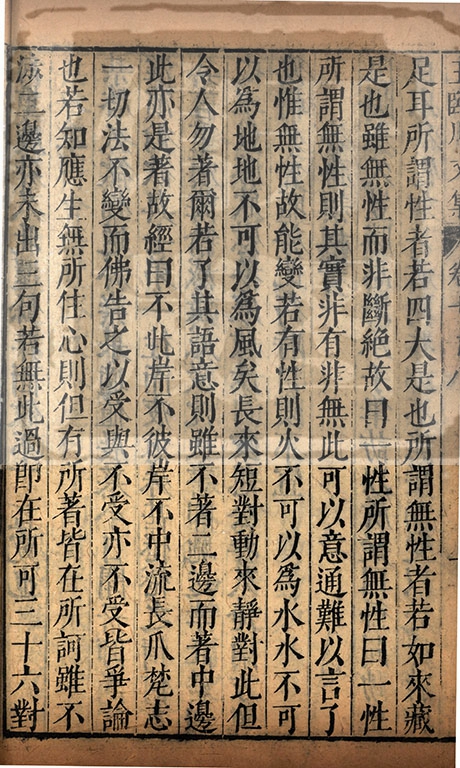 足耳所謂性者若四大是也所謂無性者若如來藏
是也雖無性而非斷絕故曰一性所謂無性曰一性
所謂無性則其實非有非無此可以意通難以言了
也惟無性故能變若有性則火不可以為水水不可
以為地地不可以為風矣長來短對動來靜對此但
令人勿著爾若了其語意則雖不著二邊而著中邊
此亦是著故經曰不此岸不彼岸不中流長爪梵志
一切法不變而佛告之以受與不受亦不受皆爭論
也若知應生無所住心則但有所著皆在所訶雖不
邊亦未出三句若無此過即在所可三十六對